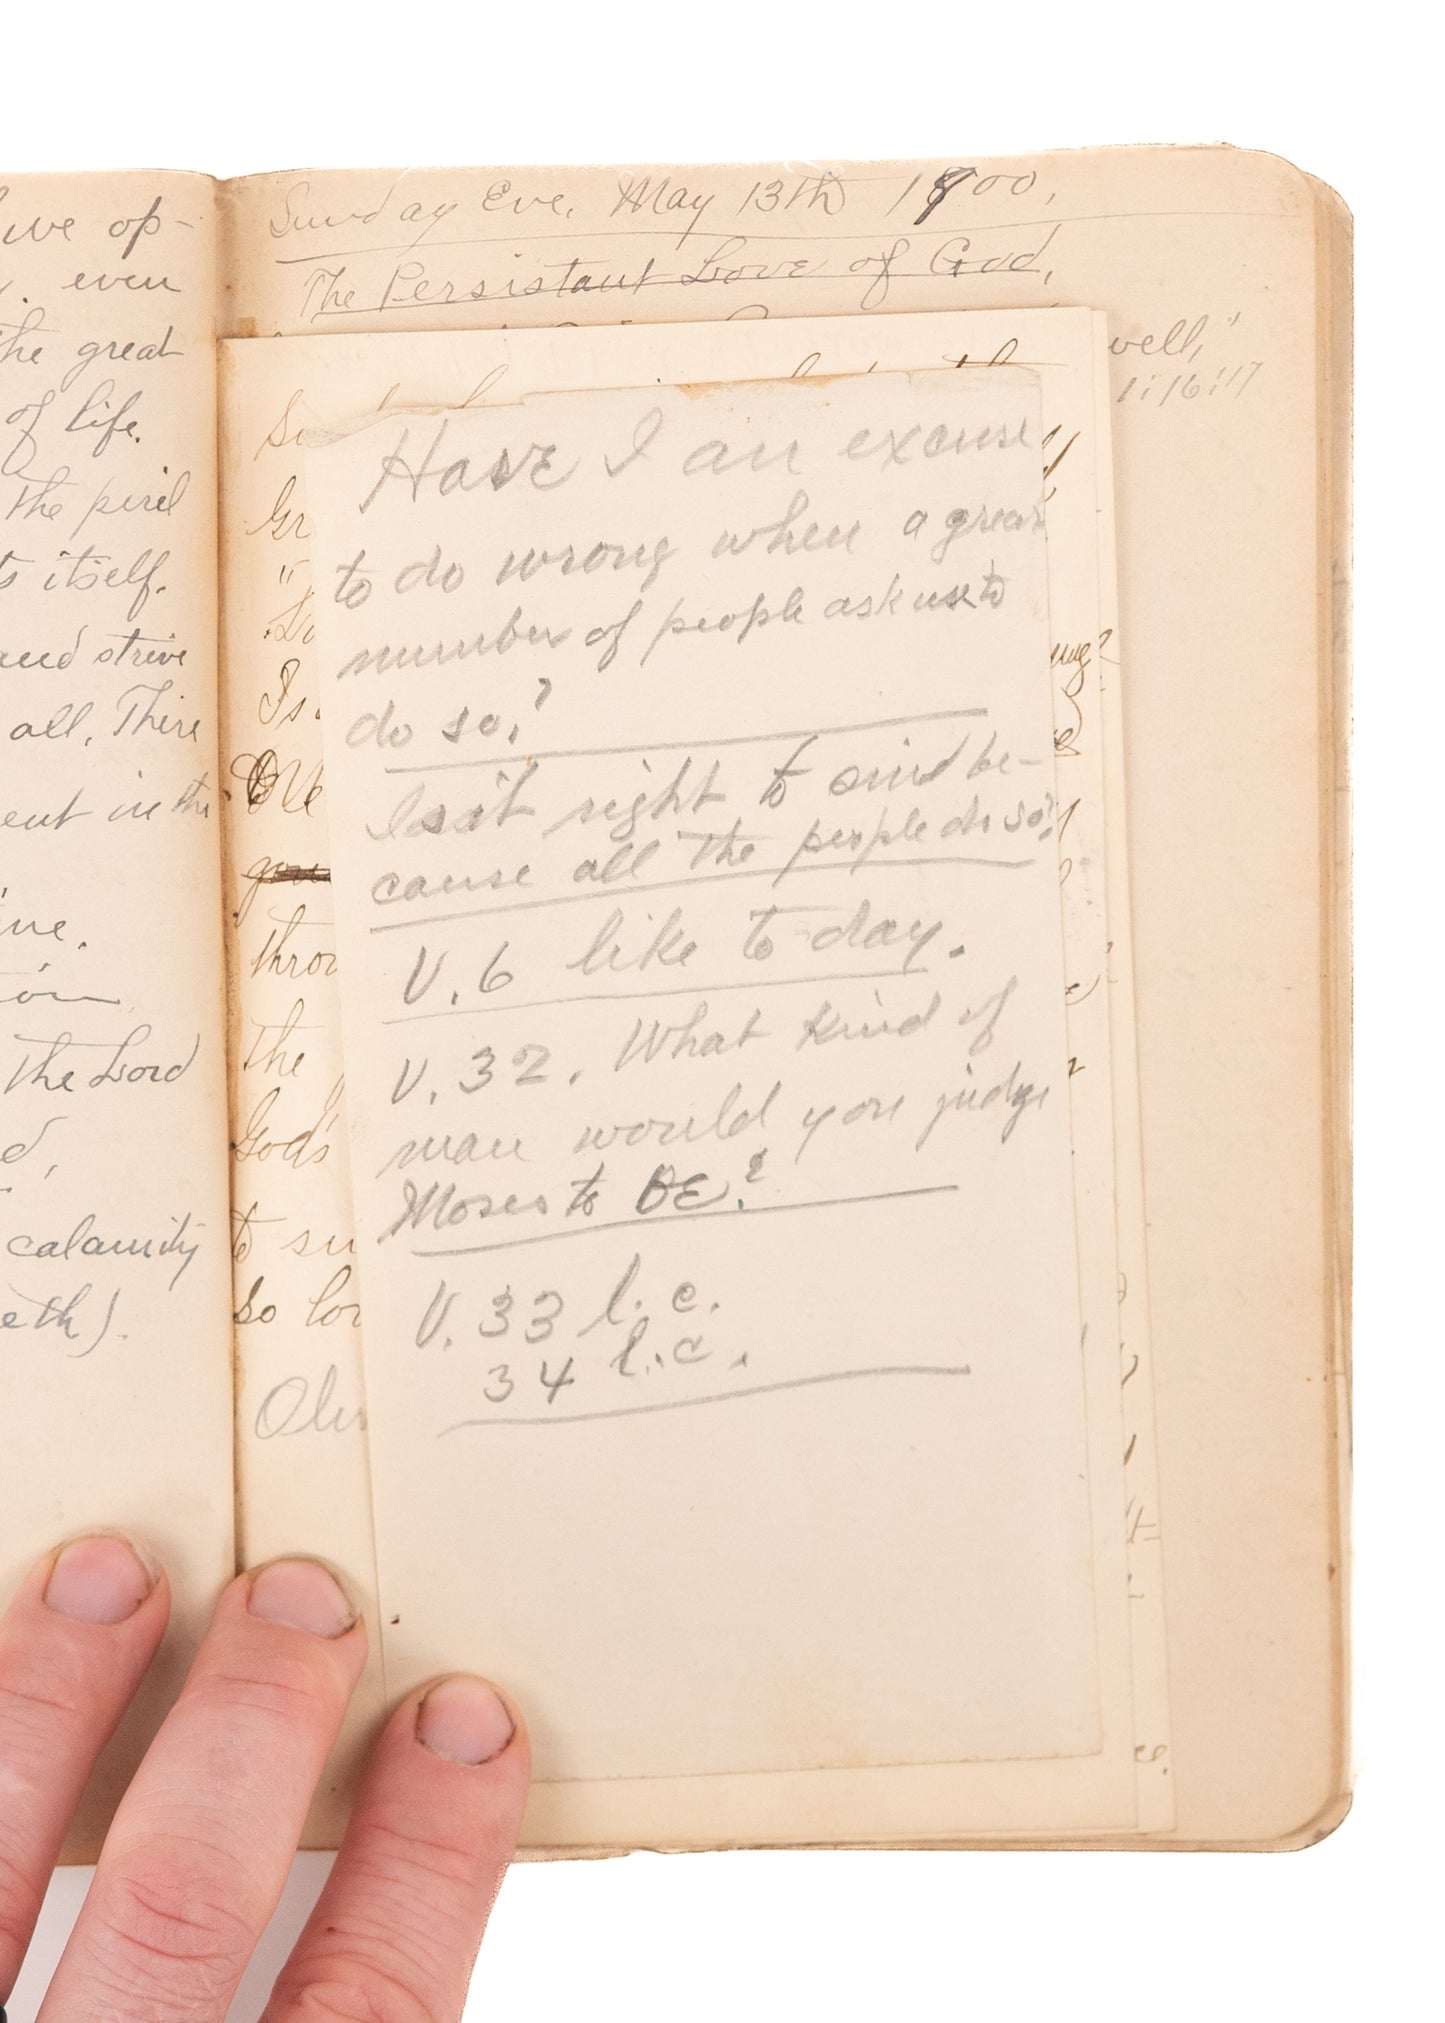 ive op-
even
the great
of life.
the peril
ts itself.
and strive
all. There
ent in the
ine.
the Lord
d,
calamity
eth).
Sunday Eve. May 13th 1900.
The Persistant Love of God,
well,"
1:16:17
Have I an excuse
to do wrong when a great
number of people ask us to
do so?
Is it right to sin be-
cause all the people do so?
V. 6 like to-day.
V. 32. What kind of
man would you judge
Moses to BE?
V. 33 l. c.
34 l. c.
Gr
Is
throu
the
God's
to su
so lov